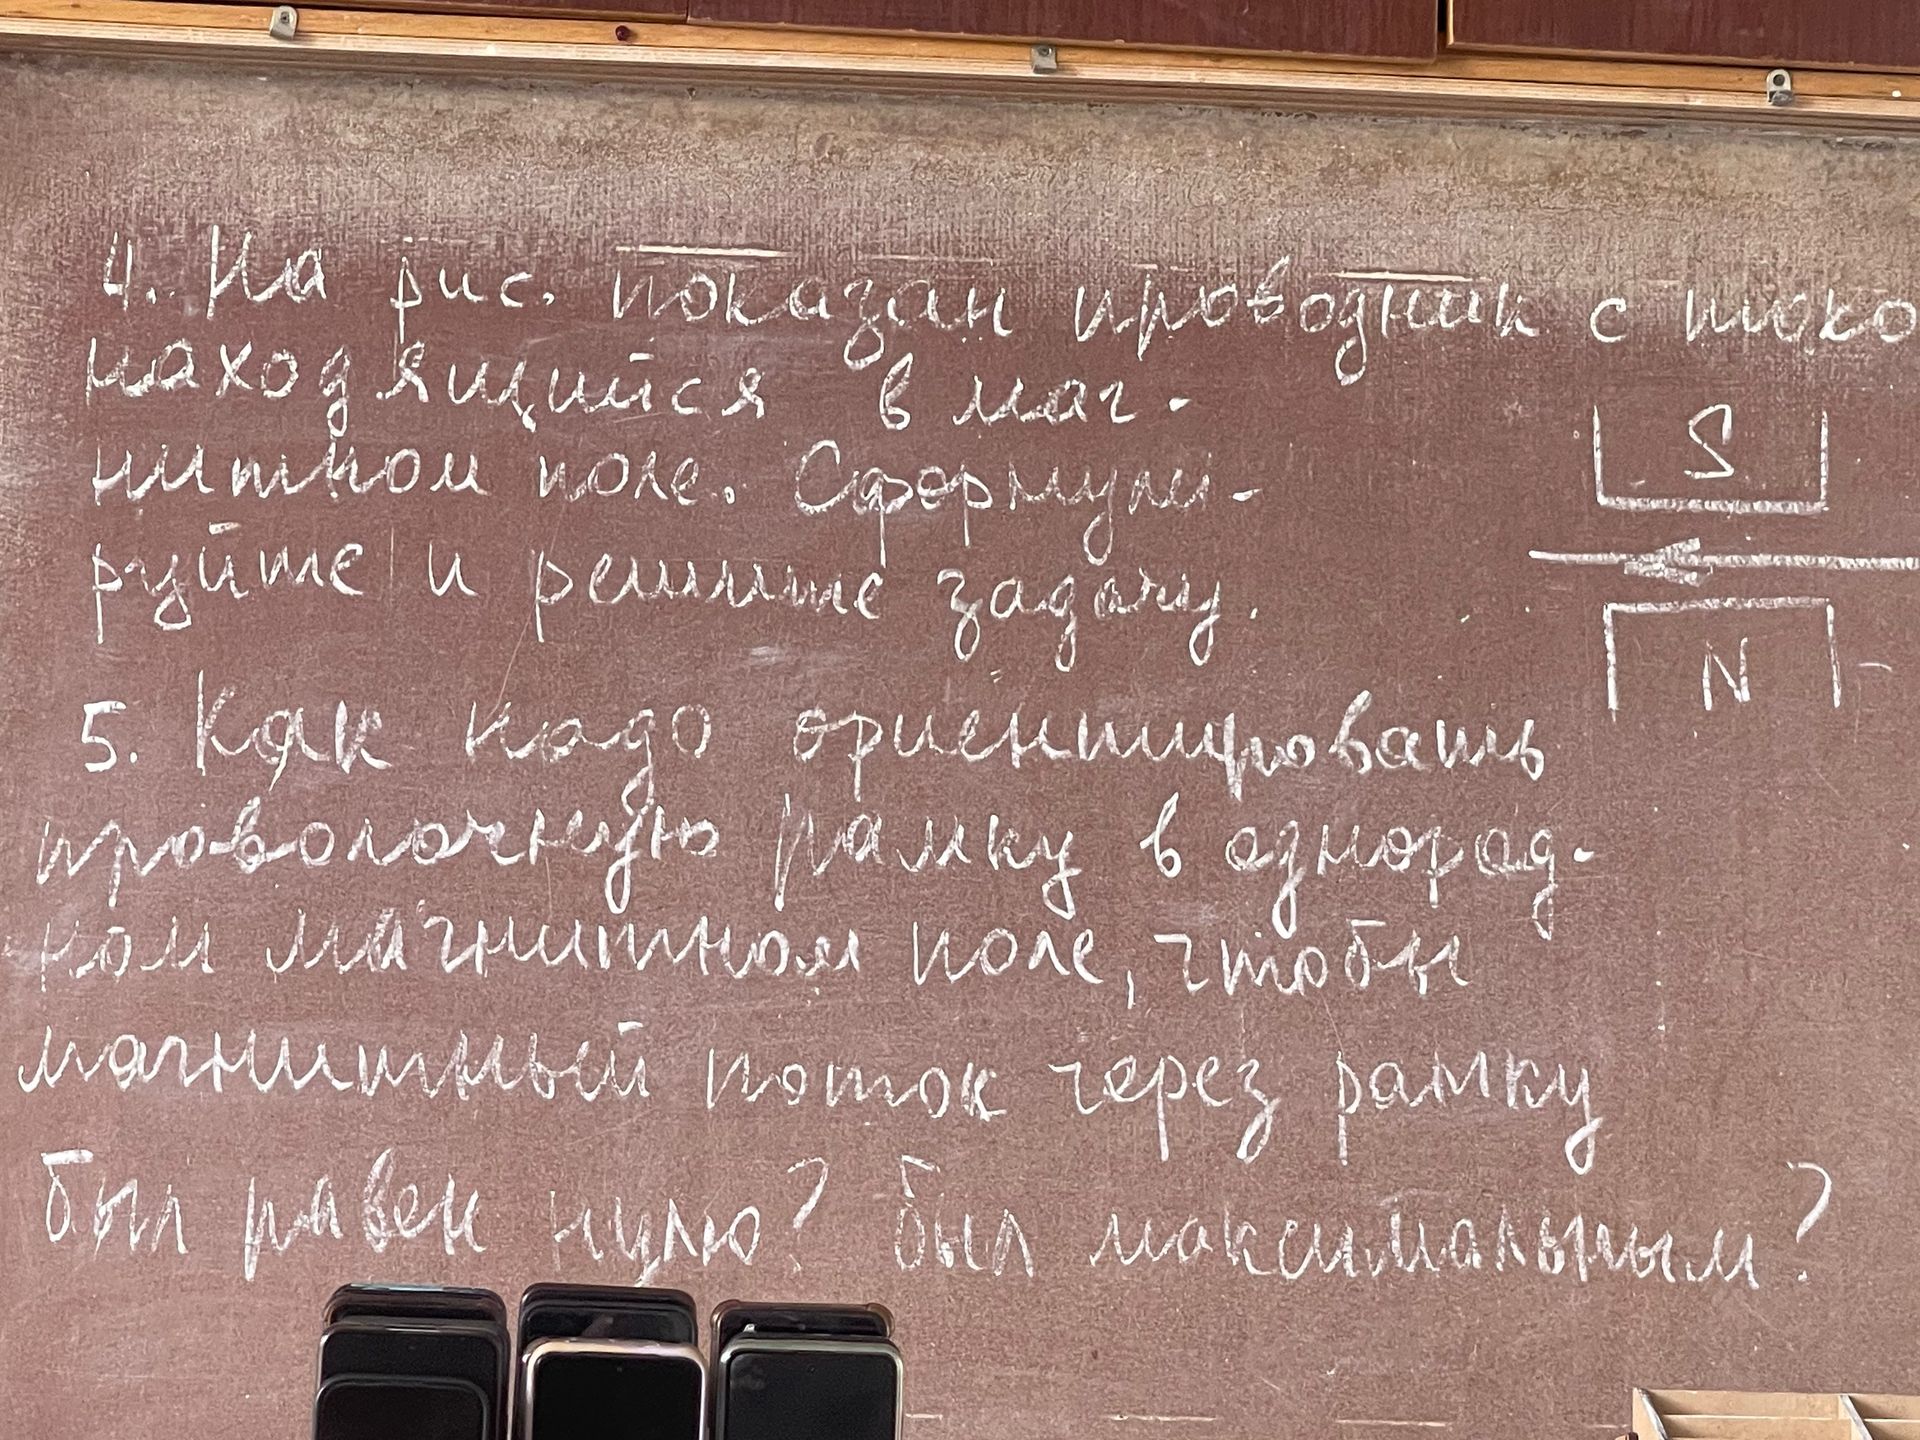 4. На рис. показан проводник с токо
находящийся в маг-
нитном поле. Сформули-
руйте и решите задачу.
S
N
5. Как надо ориентировать
проволочную рамку в однород-
ном магнитном поле, чтобы
магнитный поток через рамку
был равен нулю? был максимальным?